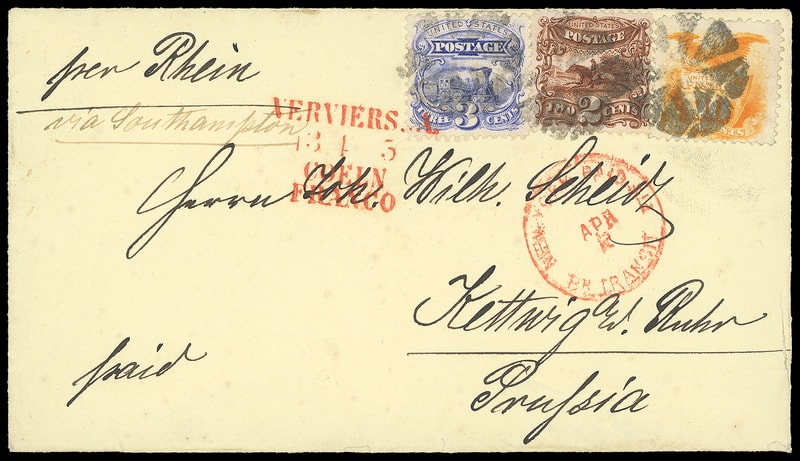 UNITED STATES POSTAGE THREE 3 CENTS
UNITED STATES POSTAGE TWO 2 CENTS
per Rhein
via Southampton
VERVIERS
COELN
FRANCO
Herrn Joh. Wilh. Scheidt
NEW YORK
APR
BR TRANSIT
Kettwig a/d. Ruhr
paid
Prußia